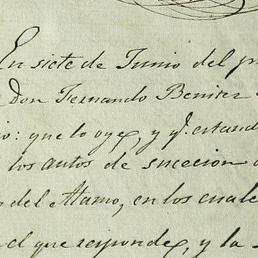 En siete de Junio del p
Don Fernando Benitez
io: que lo oye, y q.e estand
los autos de sucecion
o del Alamo, en los cuale
el que responde, y la